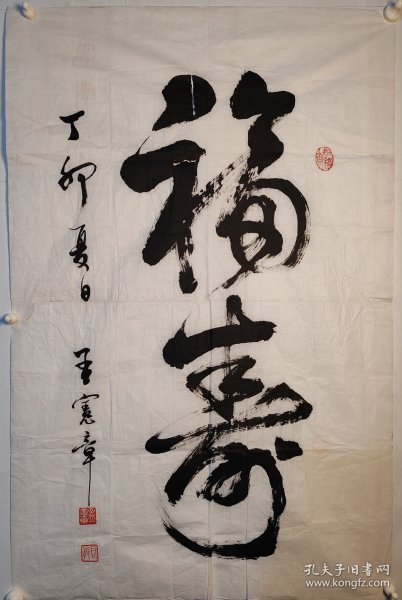 福寿
丁卯夏日
孟宪章
孔夫子旧书网
www.kongfz.com